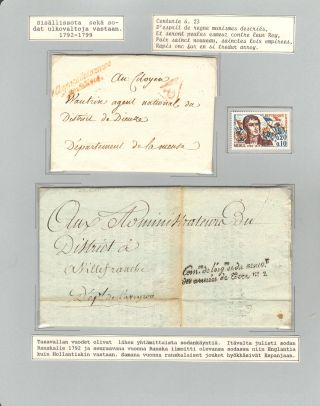 Sisällissota sekä so-
dat ulkovaltoja vastaan.
1792-1799
Centurie 6. 23
D'esprit de regne munismes descriés,
Et seront peuples esmeuz contre leur Roy,
Paix sainct nouveau, sainctes loix empirees,
Rapis onc fut en si tredur arroy.
Au Citoyen
Vautrin agent national du
District de Dieuze
Département de la meuse
0,20
0,10
Aux Administrateurs Du
District à
Villefranche
Dépt. de l'aveyron
Tasavallan vuodet olivat lähes yhtämittaista sodankäyntiä. Itävalta julisti sodan
Ranskalle 1792 ja seuraavana vuonna Ranska ilmoitti olevansa sodassa niin Englantia
kuin Hollantiakin vastaan. Samana vuonna ranskalaiset joukot hyökkäsivät Espanjaan.